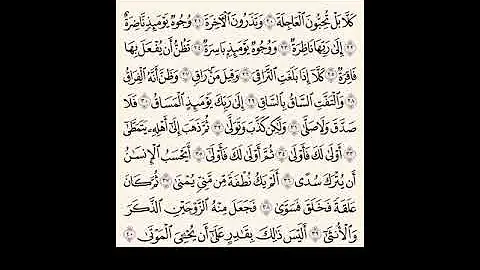 كَلَّا بَلْ تُحِبُّونَ ٱلْعَاجِلَةَ ٢٠ وَتَذَرُونَ ٱلْأَخِرَةَ ٢١ وُجُوهٌ يَوْمَئِذٍ نَّاضِرَةٌ
٢٢ إِلَىٰ رَبِّهَا نَاظِرَةٌ ٢٣ وَوُجُوهٌ يَوْمَئِذٍۭ بَاسِرَةٌ ٢٤ تَظُنُّ أَن يُفْعَلَ بِهَا
فَاقِرَةٌ ٢٥ كَلَّآ إِذَا بَلَغَتِ ٱلتَّرَاقِىَ ٢٦ وَقِيلَ مَنْ رَاقٍ ٢٧ وَظَنَّ أَنَّهُ ٱلْفِرَاقُ
٢٨ وَٱلْتَفَّتِ ٱلسَّاقُ بِٱلسَّاقِ ٢٩ إِلَىٰ رَبِّكَ يَوْمَئِذٍ ٱلْمَسَاقُ ٣٠ فَلَا
صَدَّقَ وَلَا صَلَّىٰ ٣١ وَلَٰكِن كَذَّبَ وَتَوَلَّىٰ ٣٢ ثُمَّ ذَهَبَ إِلَىٰٓ أَهْلِهِۦ يَتَمَطَّىٰٓ
٣٣ أَوْلَىٰ لَكَ فَأَوْلَىٰ ٣٤ ثُمَّ أَوْلَىٰ لَكَ فَأَوْلَىٰٓ ٣٥ أَيَحْسَبُ ٱلْإِنسَٰنُ
أَن يُتْرَكَ سُدًى ٣٦ أَلَمْ يَكُ نُطْفَةً مِّن مَّنِىٍّ يُمْنَىٰ ٣٧ ثُمَّ كَانَ
عَلَقَةً فَخَلَقَ فَسَوَّىٰ ٣٨ فَجَعَلَ مِنْهُ ٱلزَّوْجَيْنِ ٱلذَّكَرَ
وَٱلْأُنثَىٰٓ ٣٩ أَلَيْسَ ذَٰلِكَ بِقَٰدِرٍ عَلَىٰٓ أَن يُحْـِۧىَ ٱلْمَوْتَىٰ ٤٠